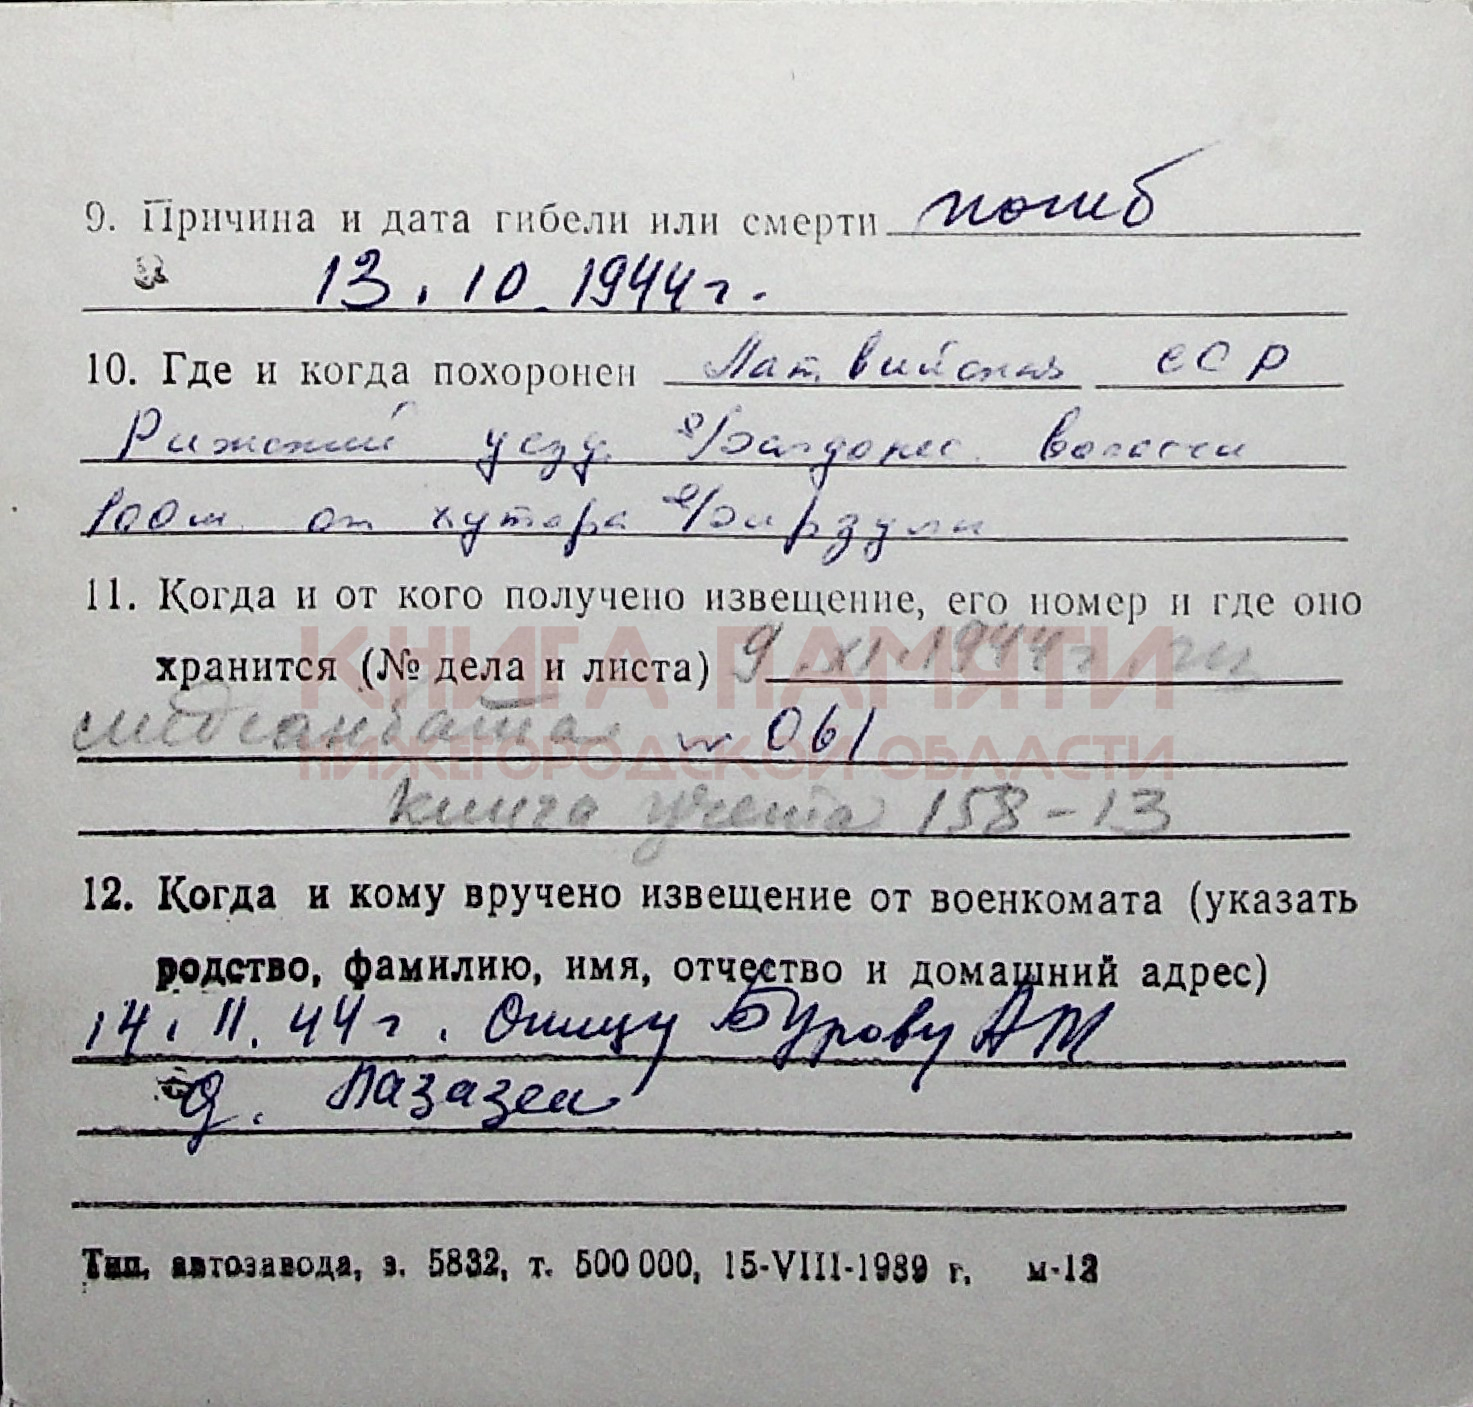 9. Причина и дата гибели или смерти погиб
13. 10. 1944 г.
10. Где и когда похоронен Латвийская ССР
Рижский уезд. Балдонес. волости
100 м. от хутора Бирзули
11. Когда и от кого получено извещение, его номер и где оно
хранится (№ дела и листа) 9.XI.1944 г.
медсанбата № 061
книга учета 158-13
КНИГА ПАМЯТИ
НИЖЕГОРОДСКОЙ ОБЛАСТИ
12. Когда и кому вручено извещение от военкомата (указать
родство, фамилию, имя, отчество и домашний адрес)
14. 11. 44 г. Отцу Бурову А М
д. Лазазей
Тип. автозавода, з. 5832, т. 500 000, 15-VIII-1989 г. м-13